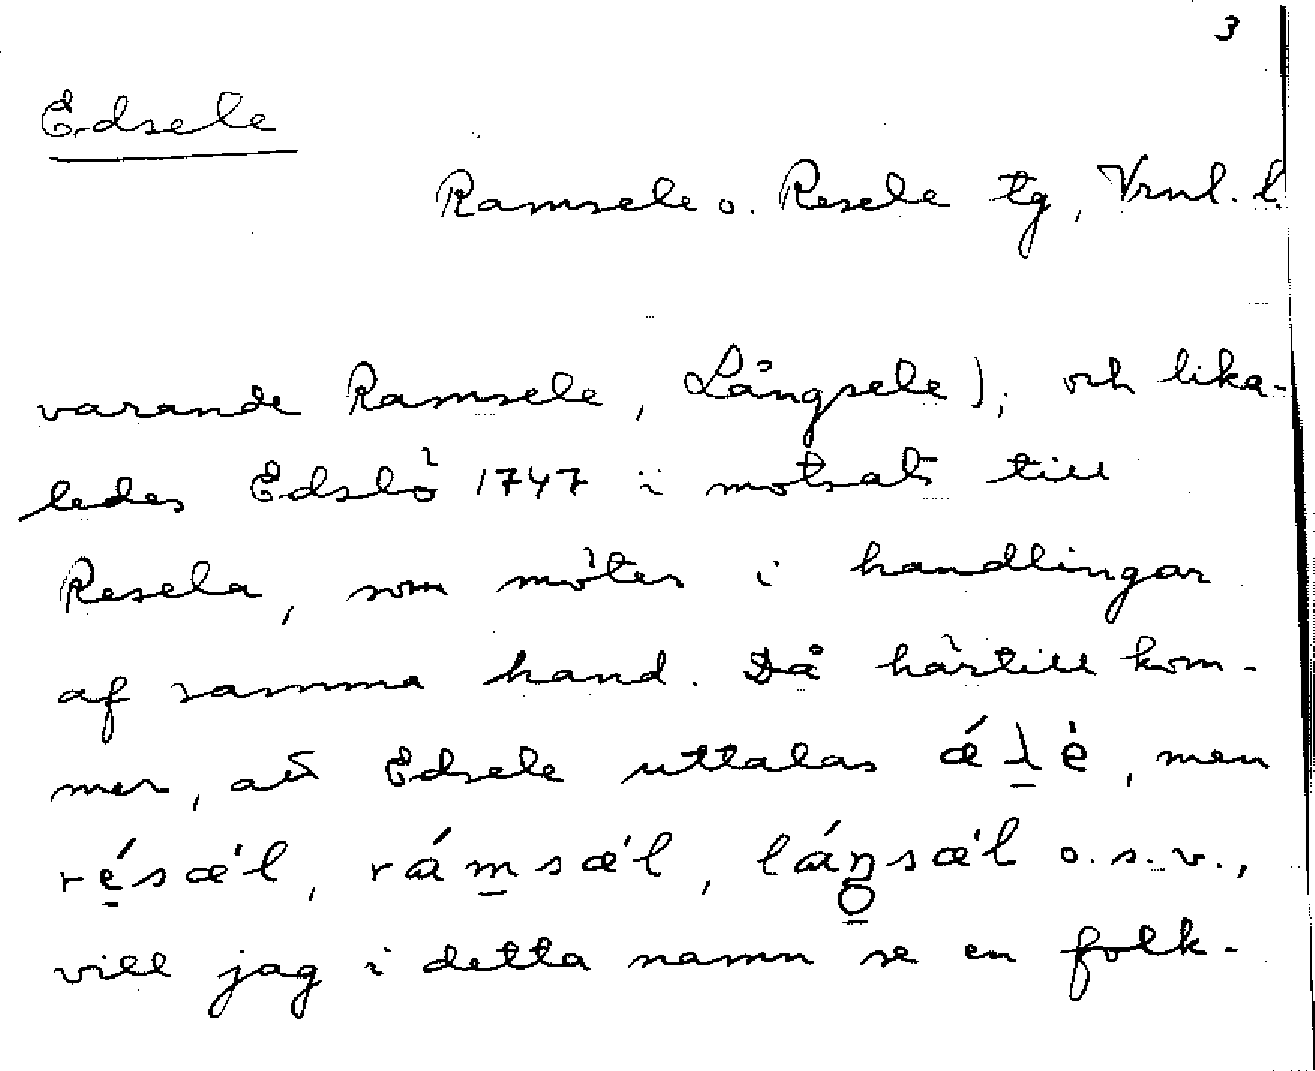 3
Edsele
Ramsele o. Resele tg, Vrnl. l.
varande Ramsele, Långsele), och lika-
ledes Edslö 1747 i motsats till
Resela, som möter i handlingar
af samma hand. Då härtill kom-
mer, att Edsele uttalas ǽ l̠ è, men
résæ'l, rám̠sæ'l, láŋsæ'l o.s.v.,
vill jag i detta namn se en folk-